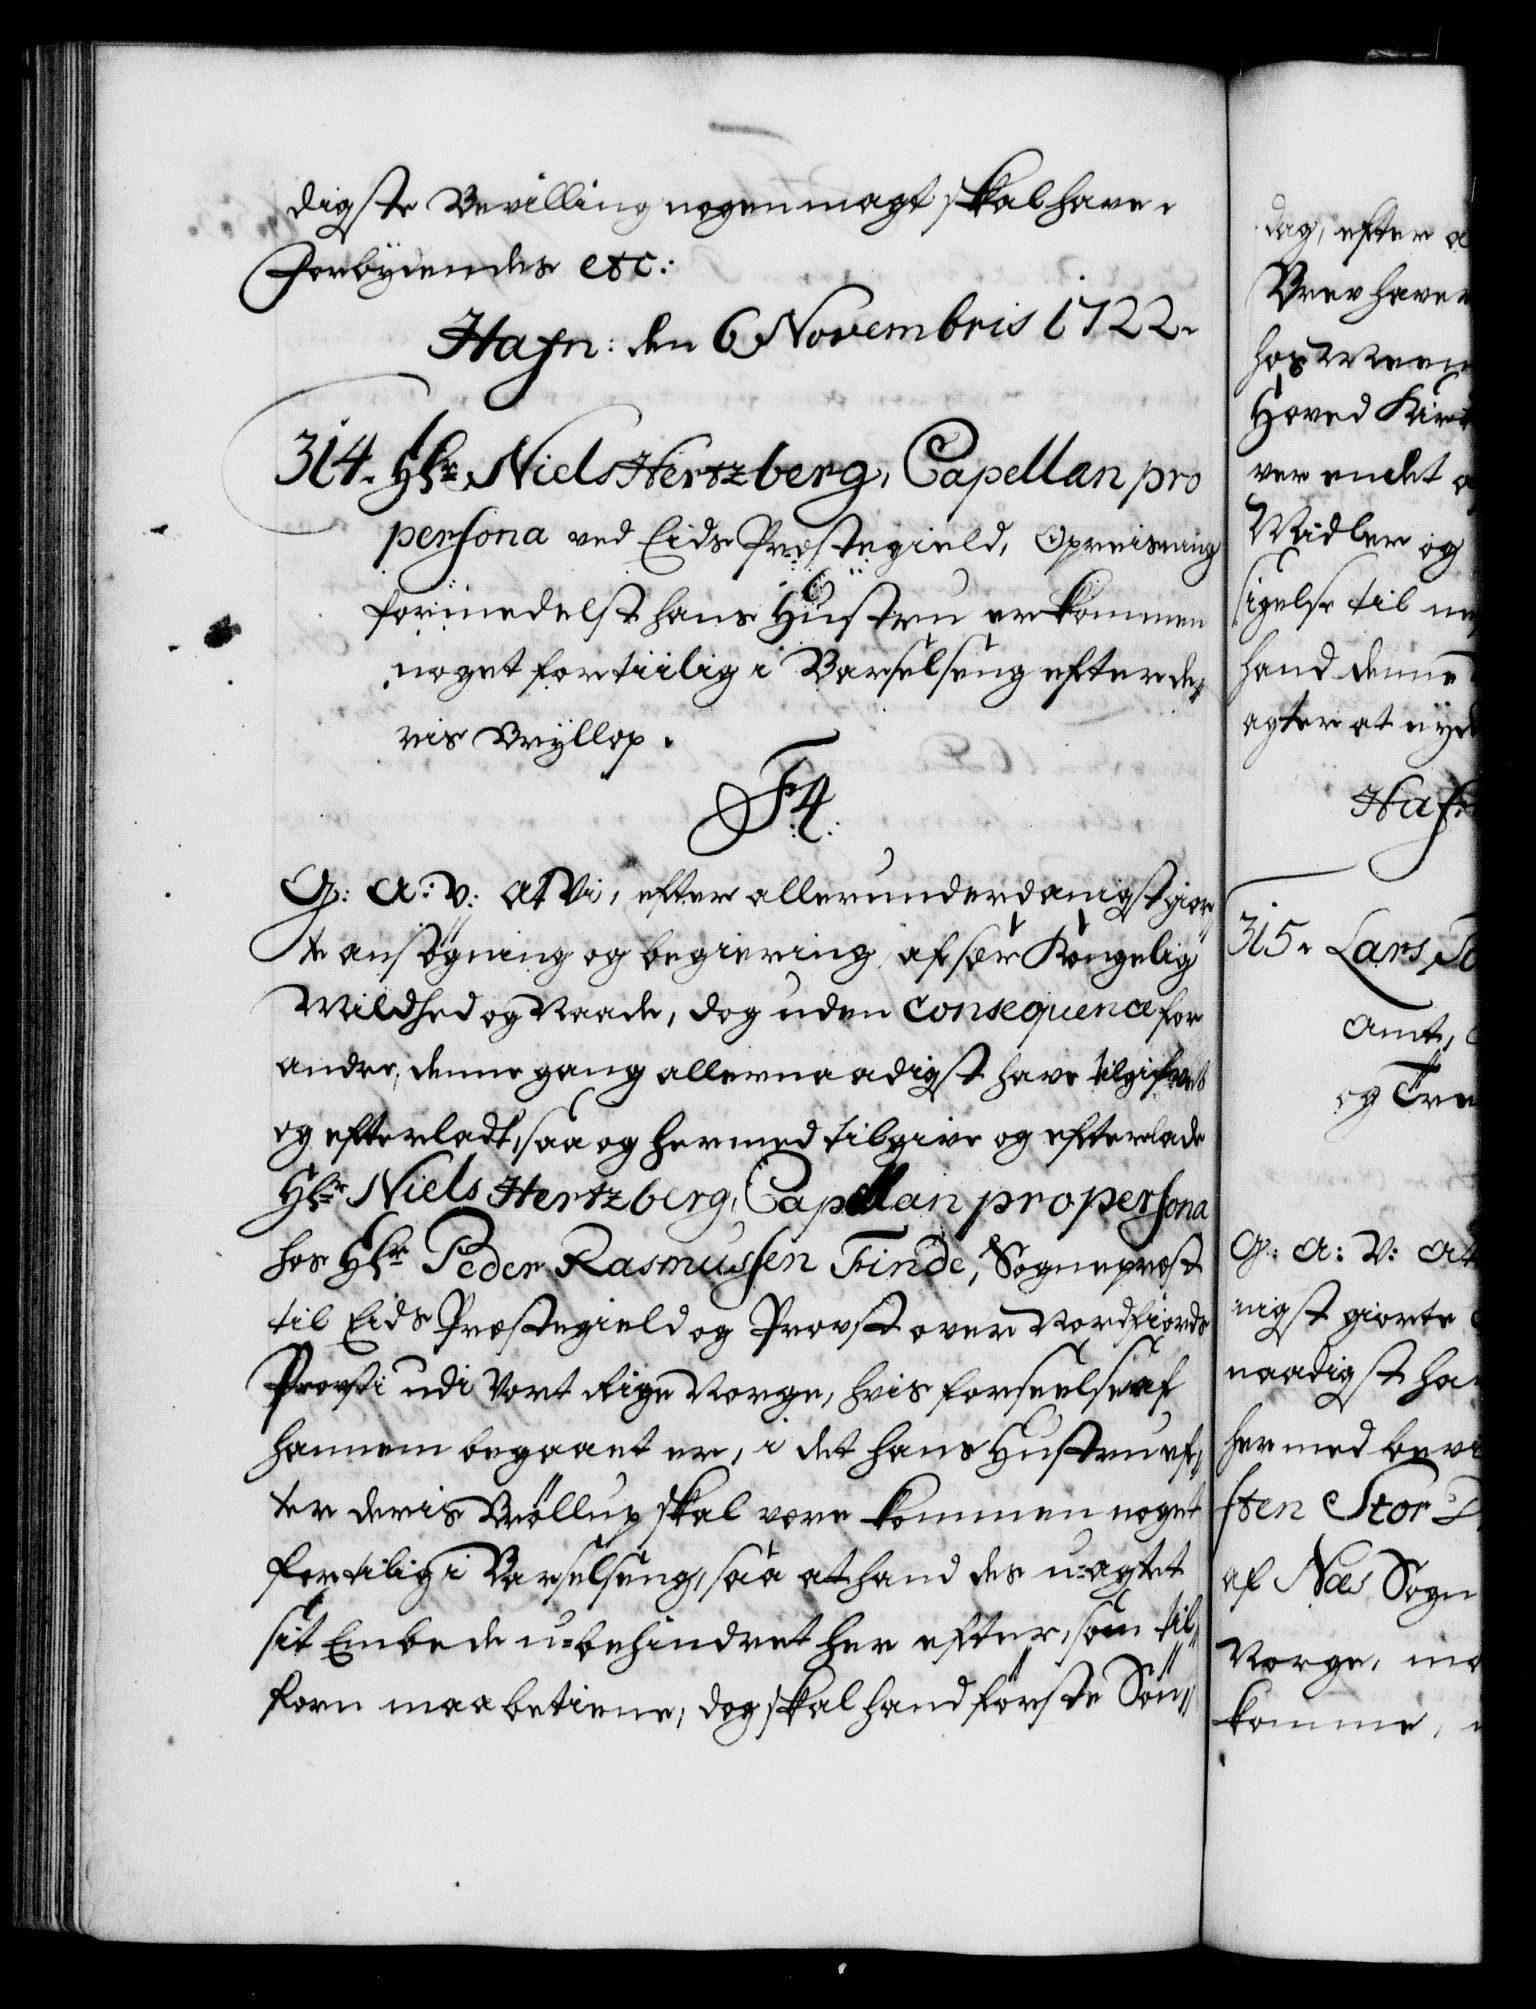 digste Bevilling nogen magt skal have.
Forbydendes etc:
Hafn: den 6 Novembris 1722.
314. Hr. Niels Hertzberg, Capellan pro
persona ved Eids Præstegield, Opreisning
formedelst hans Hustru er kommen
noget for tiilig i Barselseng efter de-
ris Bryllop.
F4
G: A: V: At Vi, efter allerunderdanigst gior-
te ansøgning og begiering, af sær Kongelig
Mildhed og Naade, dog uden consequence for
andre, denne gang allernaadigst have tilgifvet
og efterladt, saa og hermed tilgive og efterlade
Hr. Niels Hertzberg, Capellan pro persona
hos Hr. Peder Rasmussen Finde, Sognepræst
til Eids Præstegield og Provst over Nordfiords
Provsti udi Vort Rige Norge, hvis forseelse af
hannem begaaet er, i det hans Hustru ef-
ter deris Brøllup skal være kommen noget
for tilig i Barselseng, saa at hand des u-agtet
sit Embede u-behindret her efter, som til-
forn maa betiene, dog skal hand første Søn-
dag, efter a
Brev haver
hos Meen
Hoved Kir
ver endet
Midler og
sigelse til
hand denne
agter at nyd
Hafn
315. Lars
Amt,
og Tre
G: A: V: At
nigst giorte
naadigst ha
hermed bevi
sten Stor
af Næs Sogn
Norge, ma
komme,